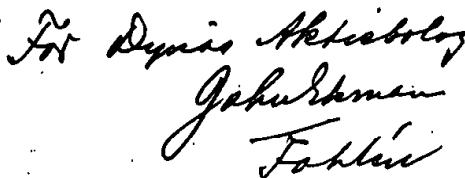 För Dynäs Aktiebolag
John Ekman
Fahlén